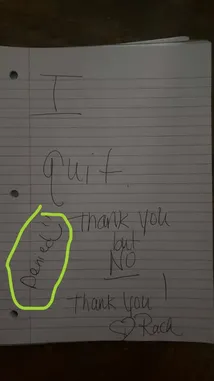 I
quit.
Thank you
but
NO
Denied!
Thank you!
♡ Rach